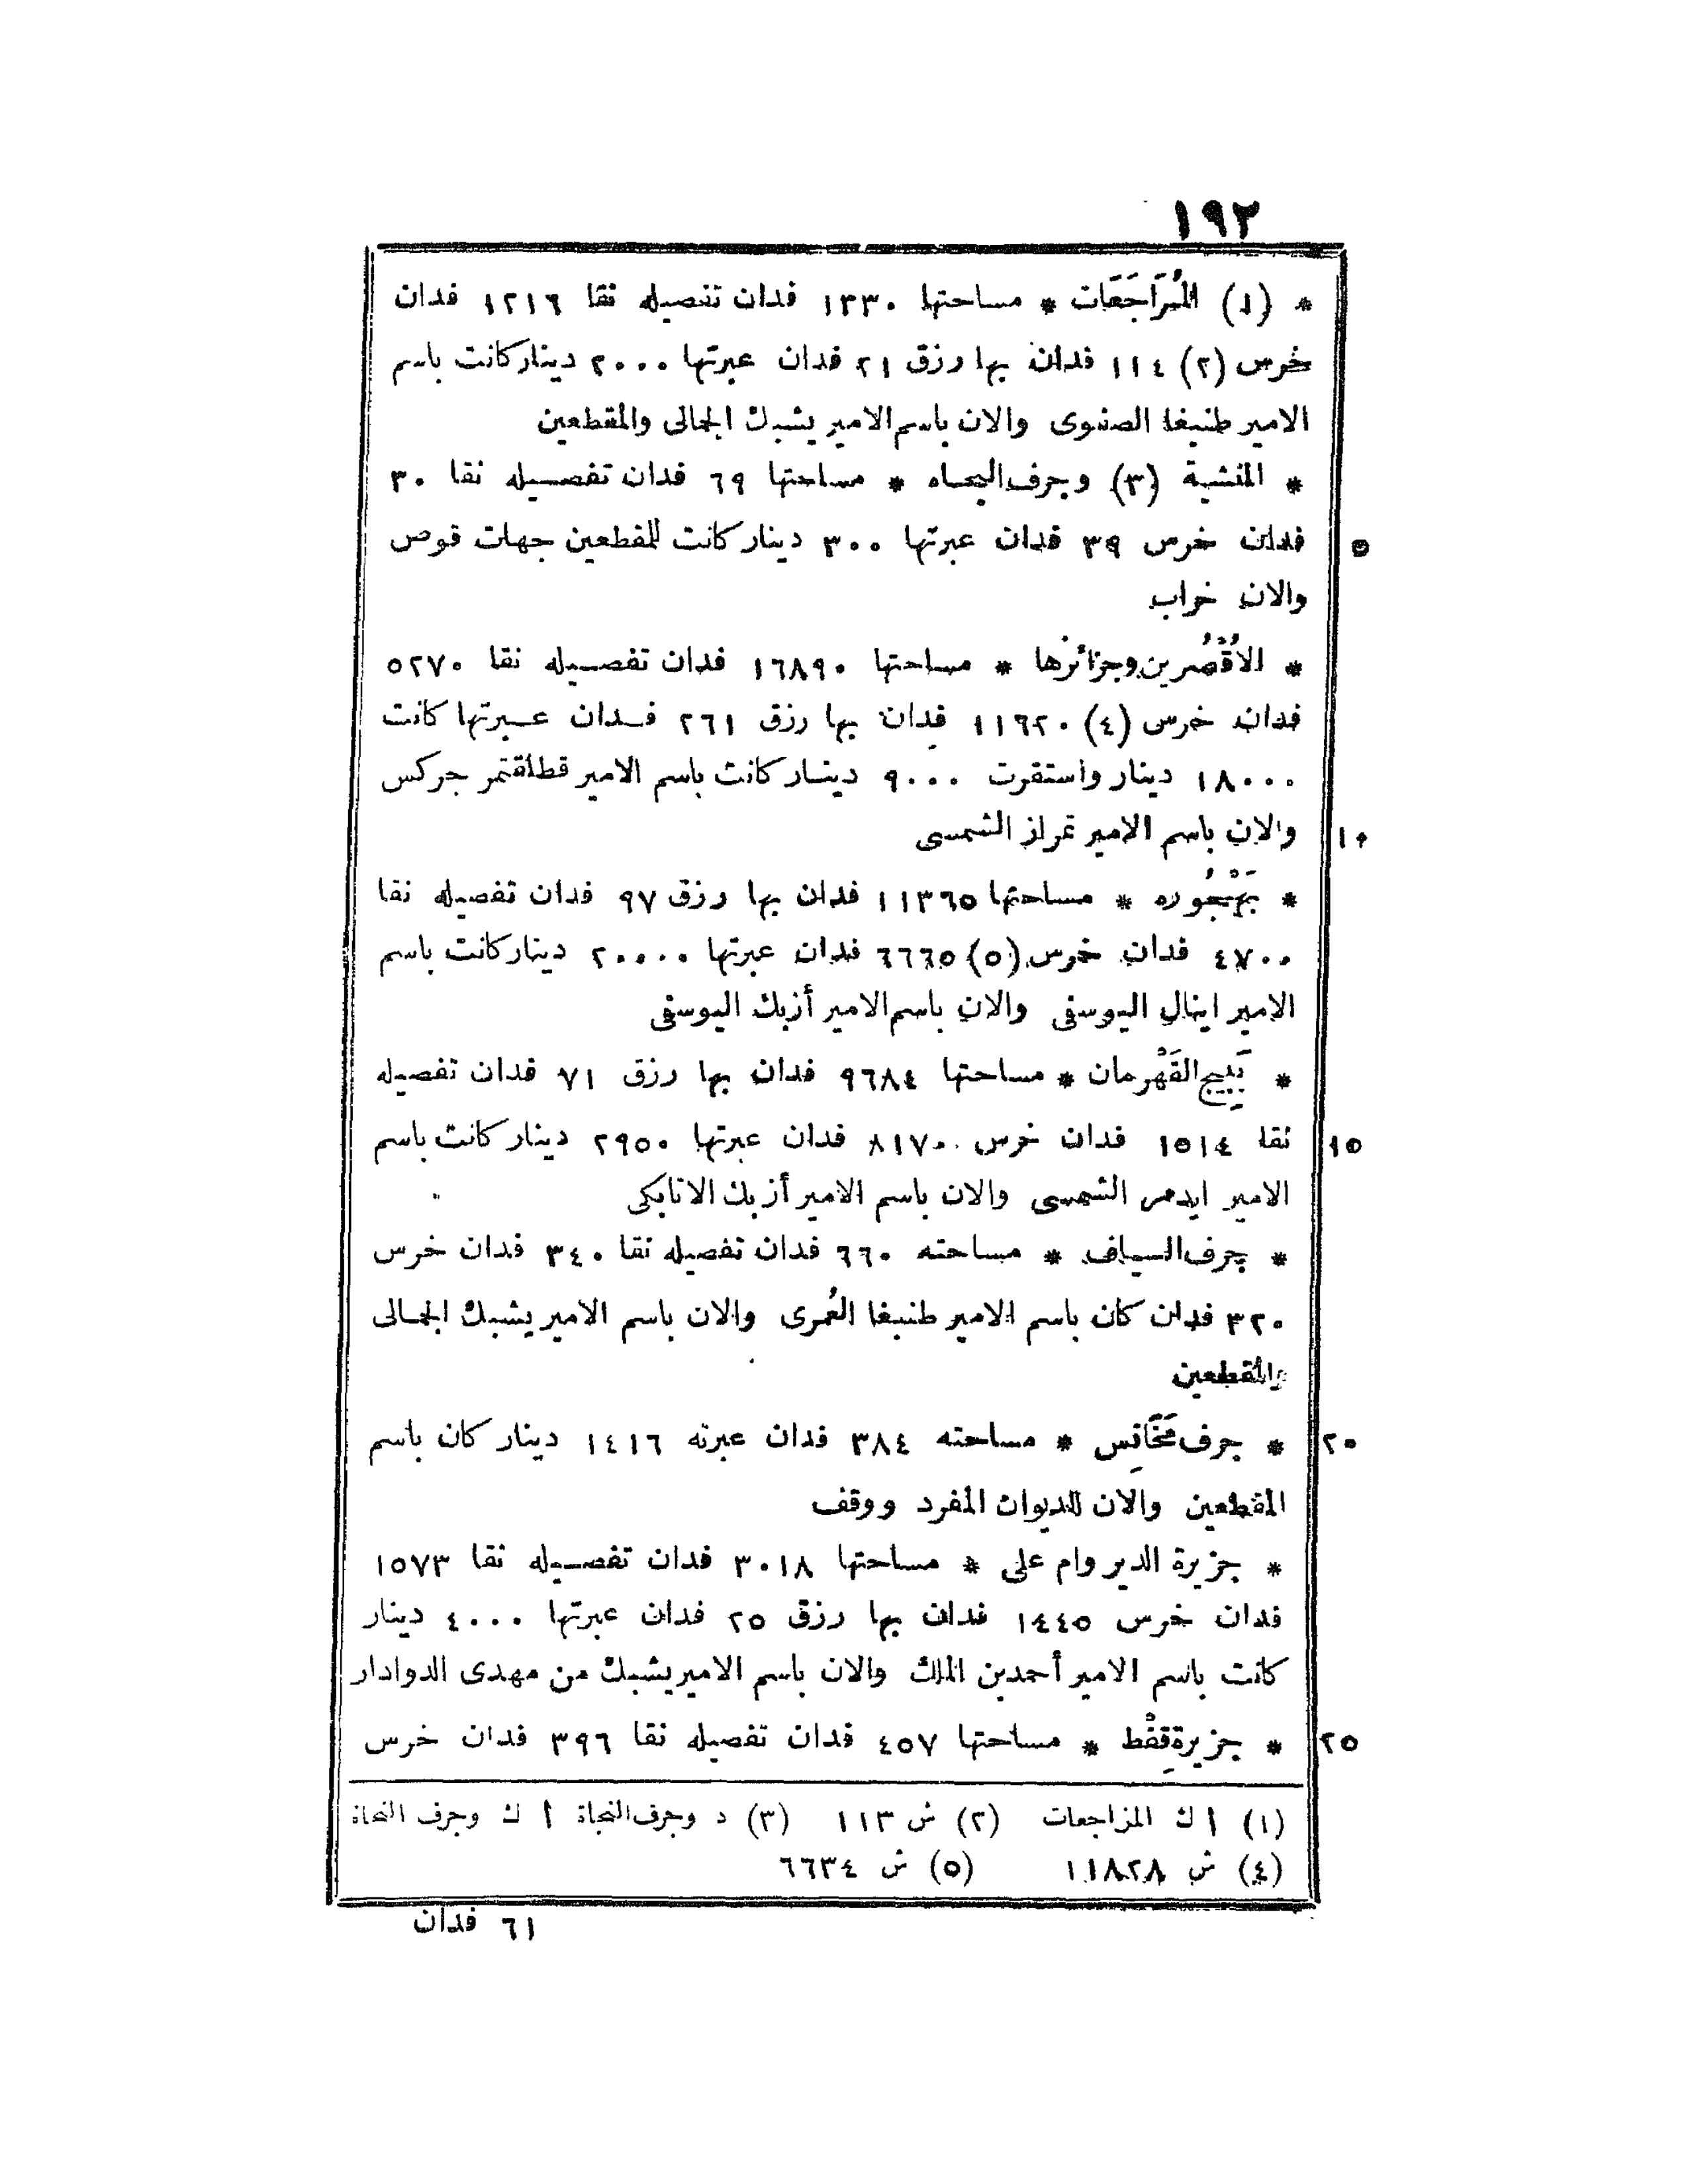 ١٩٢
* (١) المُرَاجَعَات * مساحتها ١٣٣٠ فدان تفصيله نقا ١٢١٦ فدان
خرس (٢) ١١٤ فدان بها رزق ٢١ فدان عبرتها ٢٠٠٠ دينار كانت باسم
الامير طنبغا الصفوى والان باسم الامير يشبك الجمالى والمقطعين
* المنشية (٣) وجرف اليحاه * مساحتها ٦٩ فدان تفصيله نقا ٣٠
فدان خرس ٣٩ فدان عبرتها ٣٠٠ دينار كانت للمقطعين جهات قوص
٥
والان خراب
* الاُقْصُرين وجزائرها * مساحتها ١٦٨٩٠ فدان تفصيله نقا ٥٢٧٠
فدان خرس (٤) ١١٦٢٠ فدان بها رزق ٢٦١ فدان عبرتها كانت
١٨٠٠٠ دينار واستقرت ٩٠٠٠ دينار كانت باسم الامير قطلقتمر جركس
والان باسم الامير تمراز الشمسى
١٠
* بَهْجُوره * مساحتها ١١٣٦٥ فدان بها رزق ٩٧ فدان تفصيله نقا
٤٧٠٠ فدان خرس (٥) ٦٦٦٥ فدان عبرتها ٢٠٠٠٠ دينار كانت باسم
الامير اينال اليوسفى والان باسم الامير أزبك اليوسفى
* بَبِيج القَهْرمان * مساحتها ٩٦٨٤ فدان بها رزق ٧١ فدان تفصيله
نقا ١٥١٤ فدان خرس ٨١٧٠ فدان عبرتها ٢٩٥٠ دينار كانت باسم
١٥
الامير ايدمر الشمسى والان باسم الامير أزبك الاتابكى
* جرف السياف * مساحته ٦٦٠ فدان تفصيله نقا ٣٤٠ فدان خرس
٣٢٠ فدان كان باسم الامير طنبغا العُمرى والان باسم الامير يشبك الجمالى
والمقطعين
* جرف مَخَانِس * مساحته ٣٨٤ فدان عبرته ١٤١٦ دينار كان باسم
٢٠
المقطعين والان للديوان المفرد ووقف
* جزيرة الدير وام على * مساحتها ٣٠١٨ فدان تفصيله نقا ١٥٧٣
فدان خرس ١٤٤٥ فدان بها رزق ٢٥ فدان عبرتها ٤٠٠٠ دينار
كانت باسم الامير أحمد بن الملك والان باسم الامير يشبك من مهدى الدوادار
* جزيرة قِفْط * مساحتها ٤٥٧ فدان تفصيله نقا ٣٩٦ فدان خرس
٢٥
(١) أ ك المزاجعات (٢) ش ١١٣ (٣) د وجرف النجاة أ ك وجرف النحاة
(٤) ش ١١٨٢٨ (٥) ش ٦٦٣٤
٦١ فدان